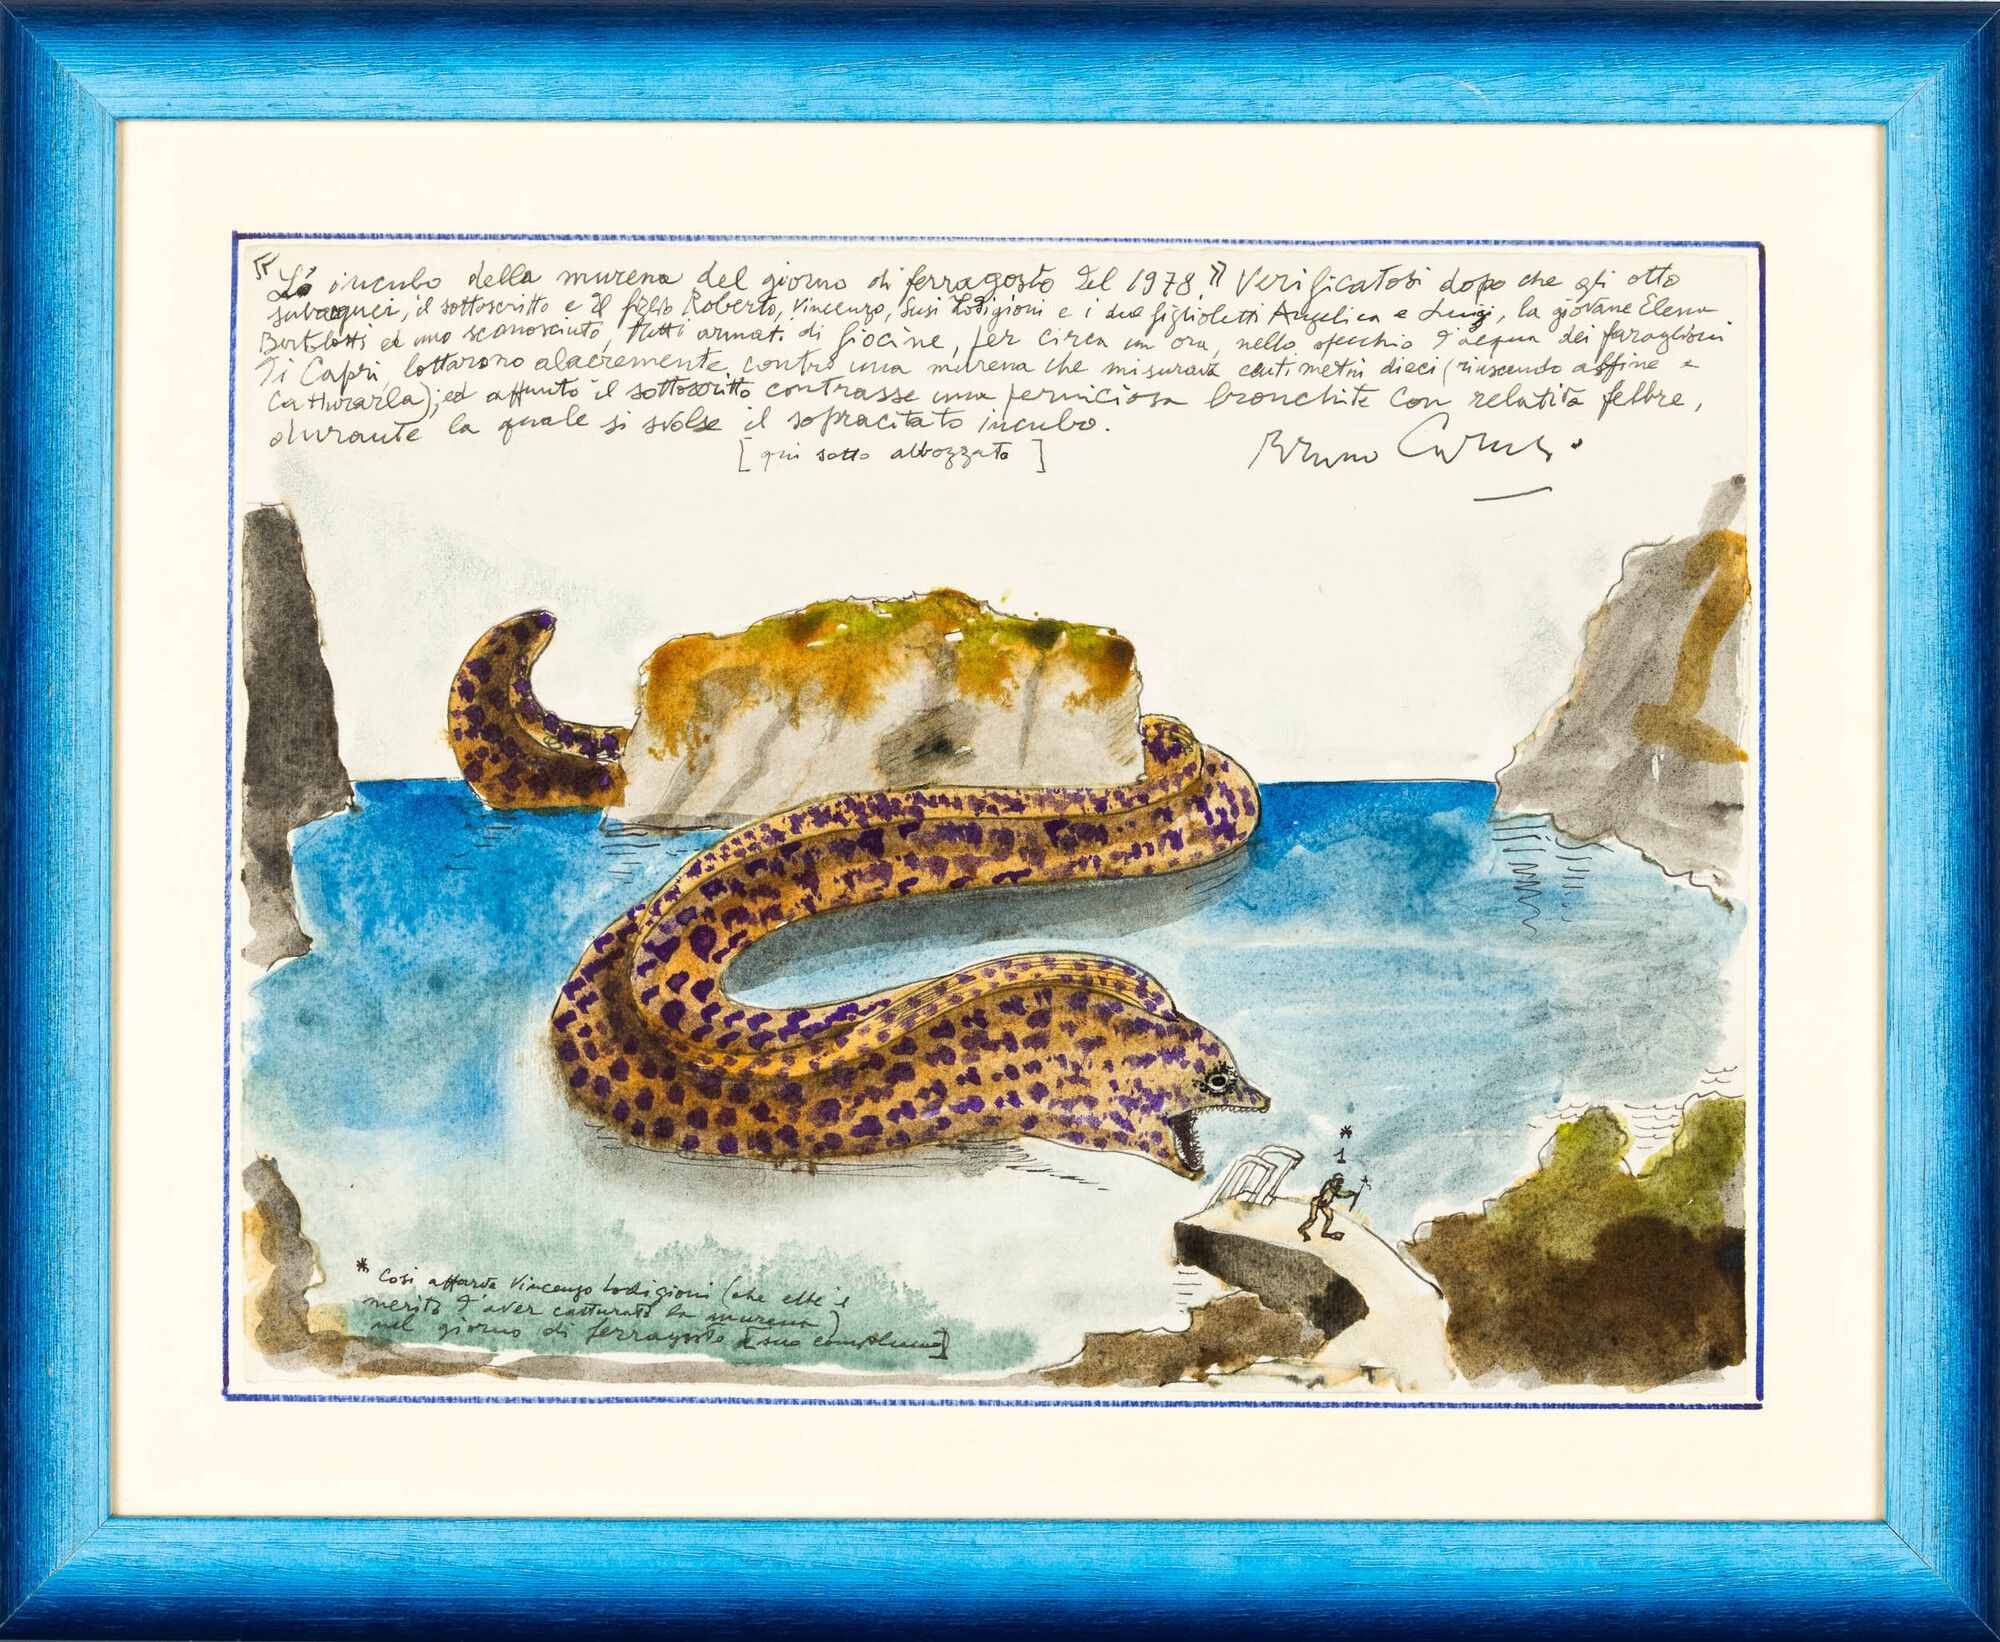 "Lo incubo della murena del giorno di ferragosto del 1978." Verificatosi dopo che gli otto
subaquei, il sottoscritto e il figlio Roberto, Vincenzo, Susi Lodigioni e i due figlioletti Angelica e Luigi, la giovane Elena
Bertolotti ed uno sconosciuto, tutti armati di fiocine, per circa un'ora, nello specchio d'acqua dei faraglioni
di Capri, lottarono alacremente contro una murena che misurava centimetri dieci (riuscendo affine a
catturarla); ed appunto il sottoscritto contrasse una perniciosa bronchite con relativa febbre,
durante la quale si svolse il sopracitato incubo.
[qui sotto abbozzato]
Bruno Caruso
* 1
* Così affronta Vincenzo Lodigioni (che ebbe il
merito d'aver catturato la murena)
nel giorno di ferragosto [suo compleanno]